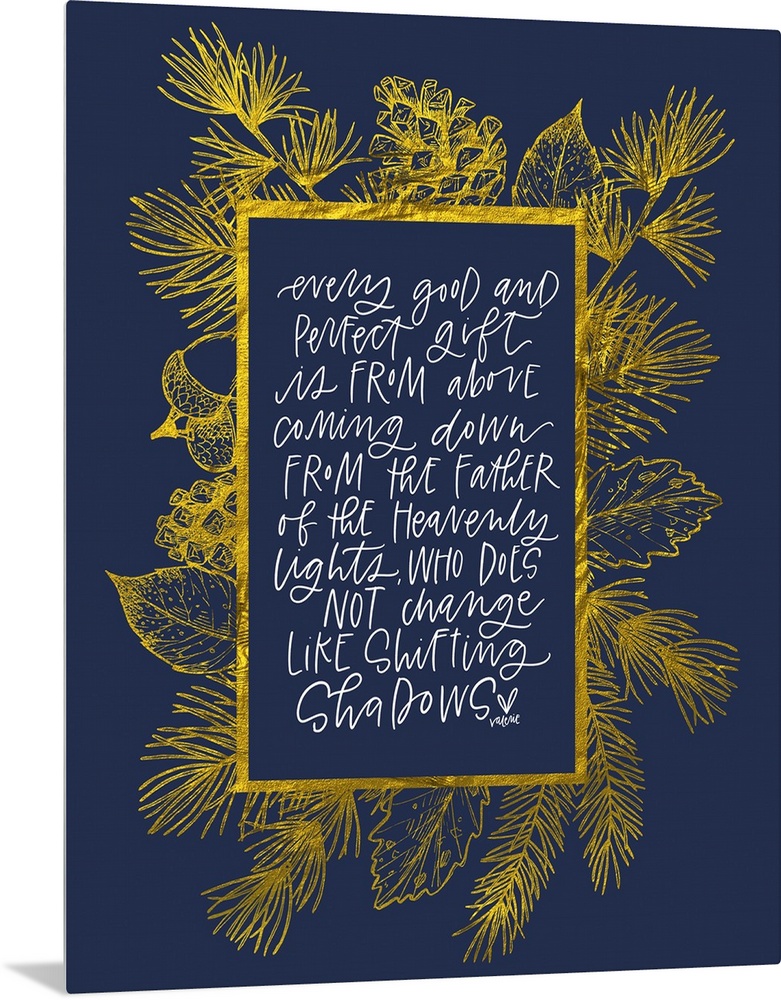 every good and
Perfect gift
is FROM above
coming down
FROM the Father
of the Heavenly
lights, WHO DOES
NOT change
LIKE Shifting
ShaDOWS
valerie